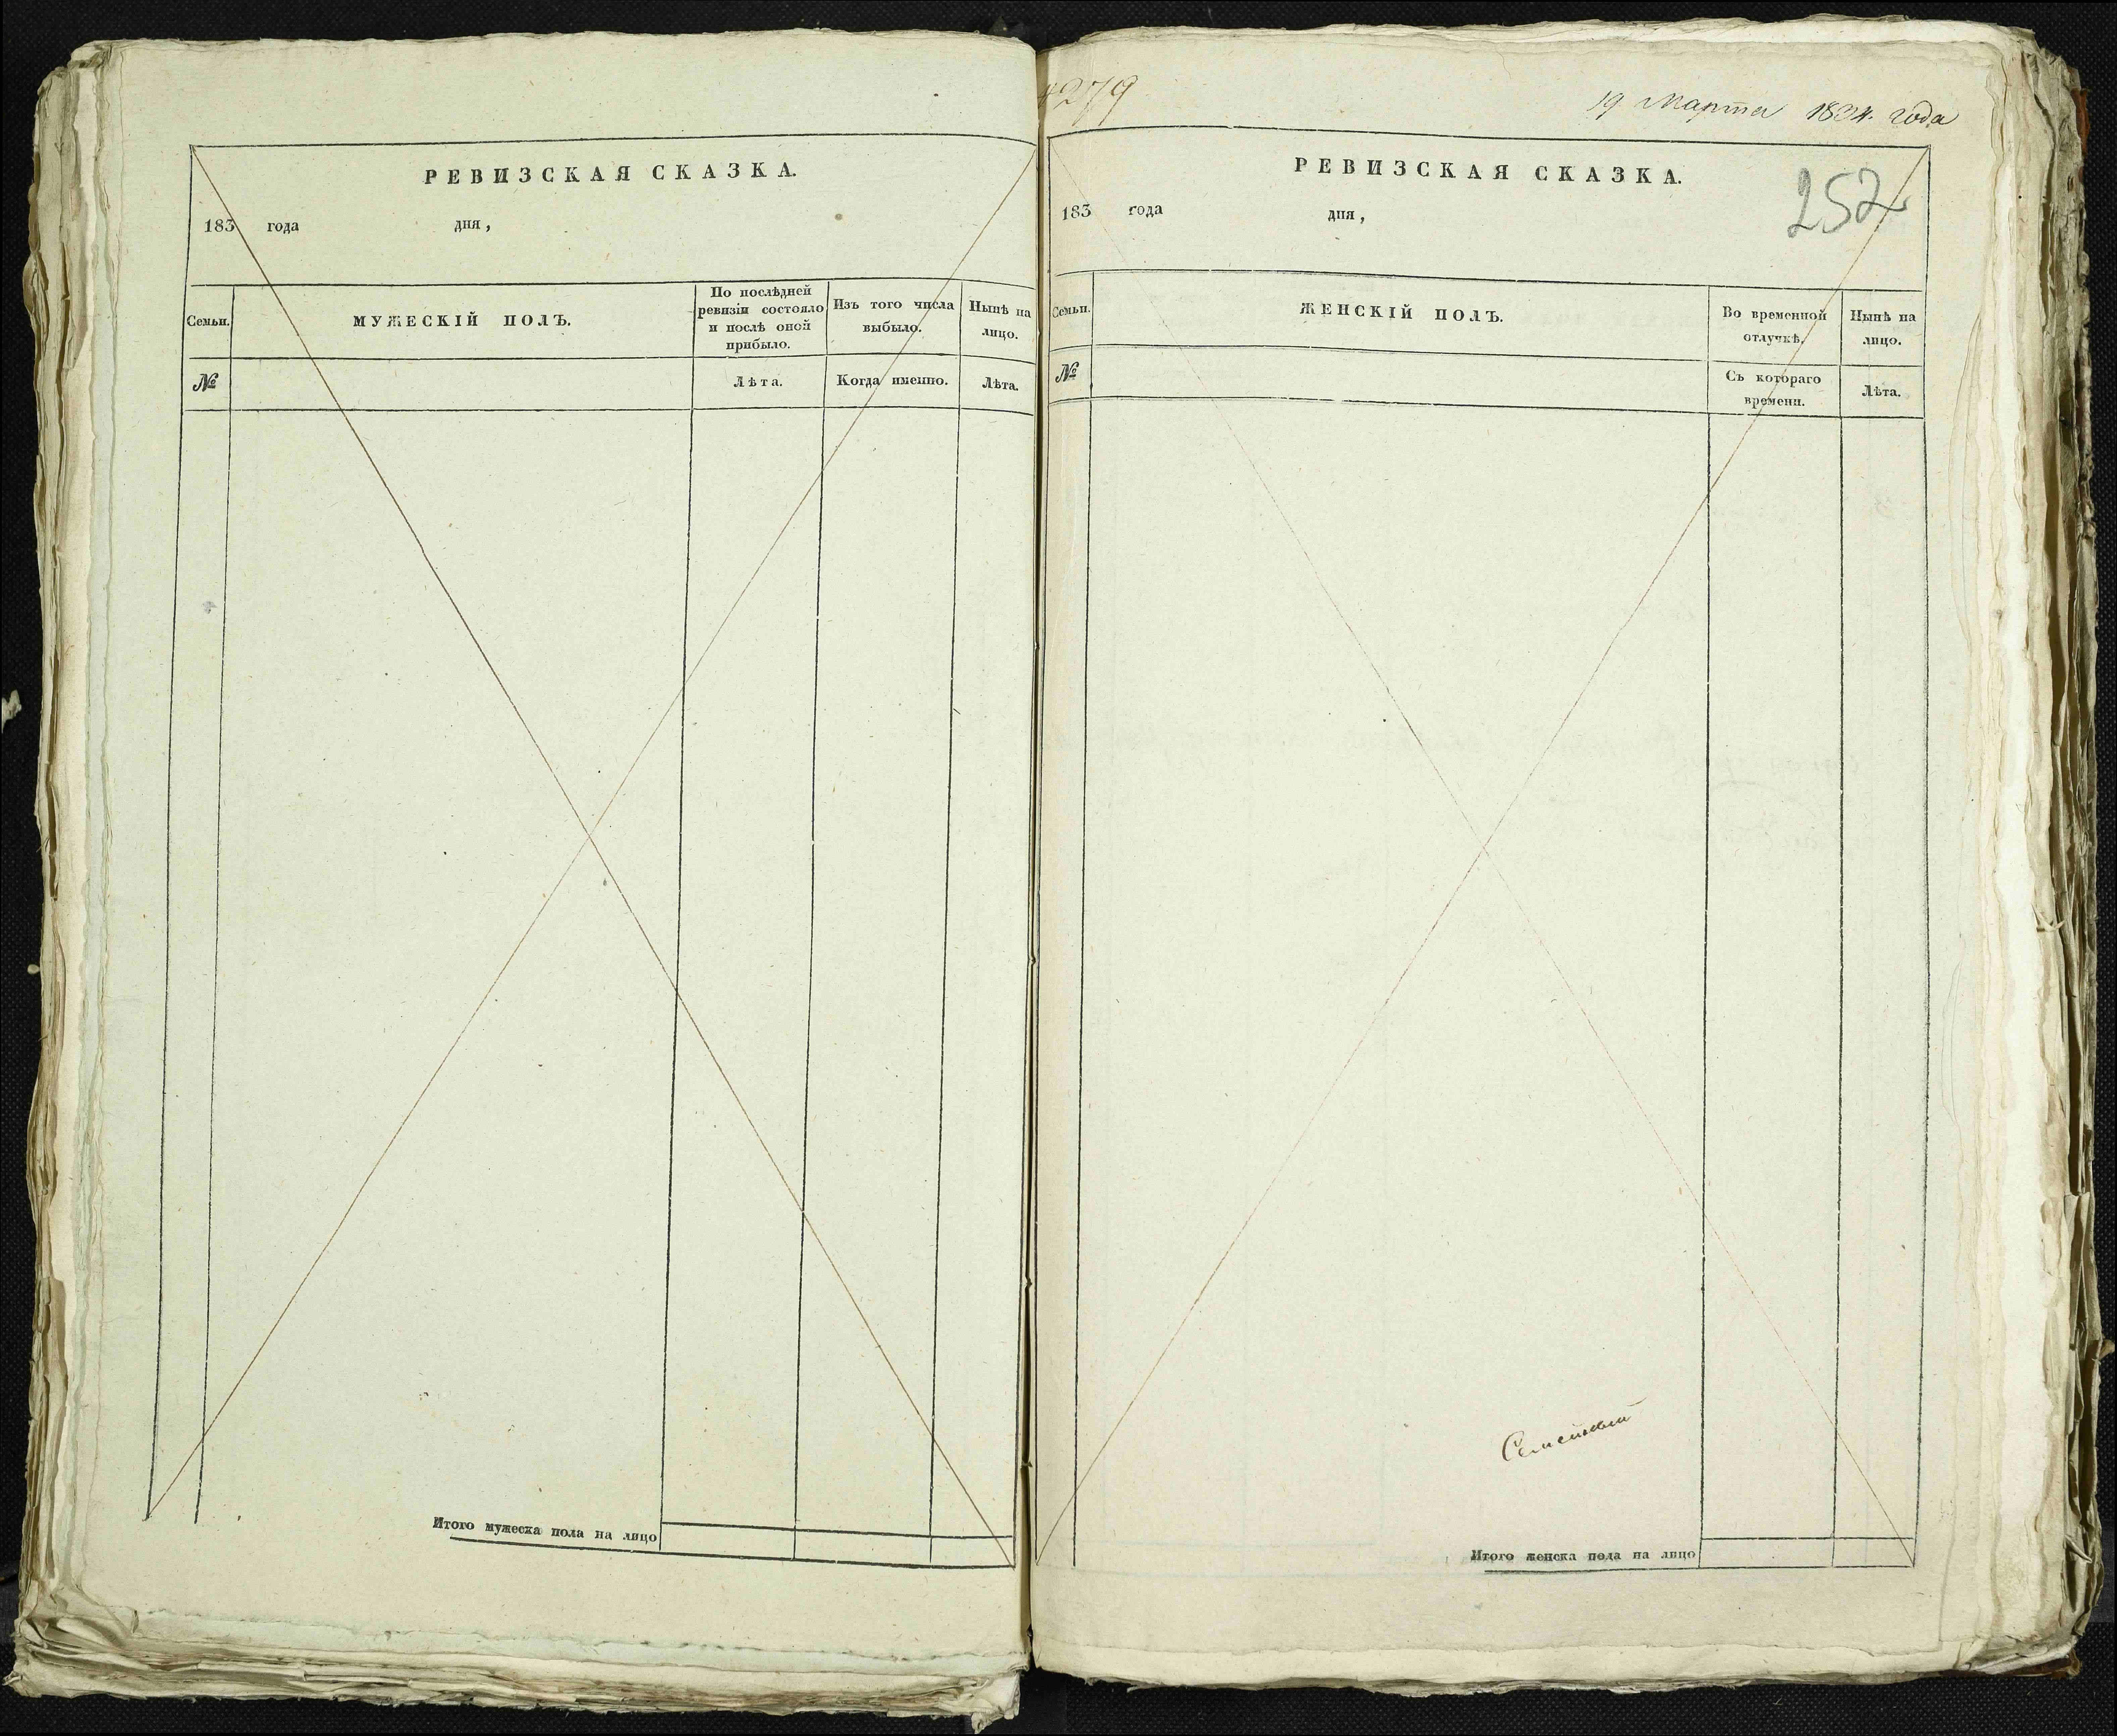 РЕВИЗСКАЯ СКАЗКА.
183 года дня,
Семьи. МУЖЕСКІЙ ПОЛЪ. По послѣдней ревизіи состояло и послѣ оной прибыло. Изъ того числа выбыло. Нынѣ на лицо.
№ Лѣта. Когда именно. Лѣта.
Итого мужеска пола на лицо
4279
19 Марта 1834. года
РЕВИЗСКАЯ СКАЗКА.
252
183 года дня,
Семьи. ЖЕНСКІЙ ПОЛЪ. Во временной отлучкѣ. Нынѣ на лицо.
№ Съ котораго времени. Лѣта.
Итого женска пола на лицо